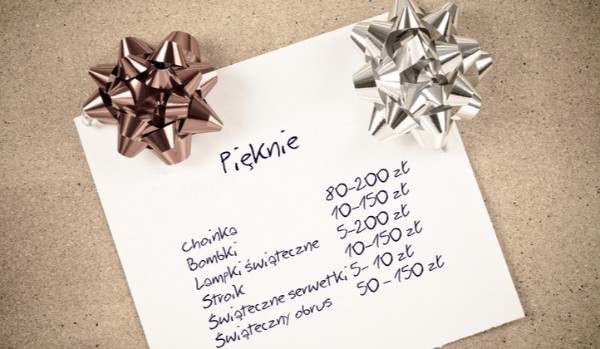 Pięknie
choinka 80-200 zł
Bombki 10-150 zł
Lampki świąteczne 5-200 zł
Stroik 10-150 zł
Świąteczne serwetki 5-10 zł
Świąteczny obrus 50-150 zł